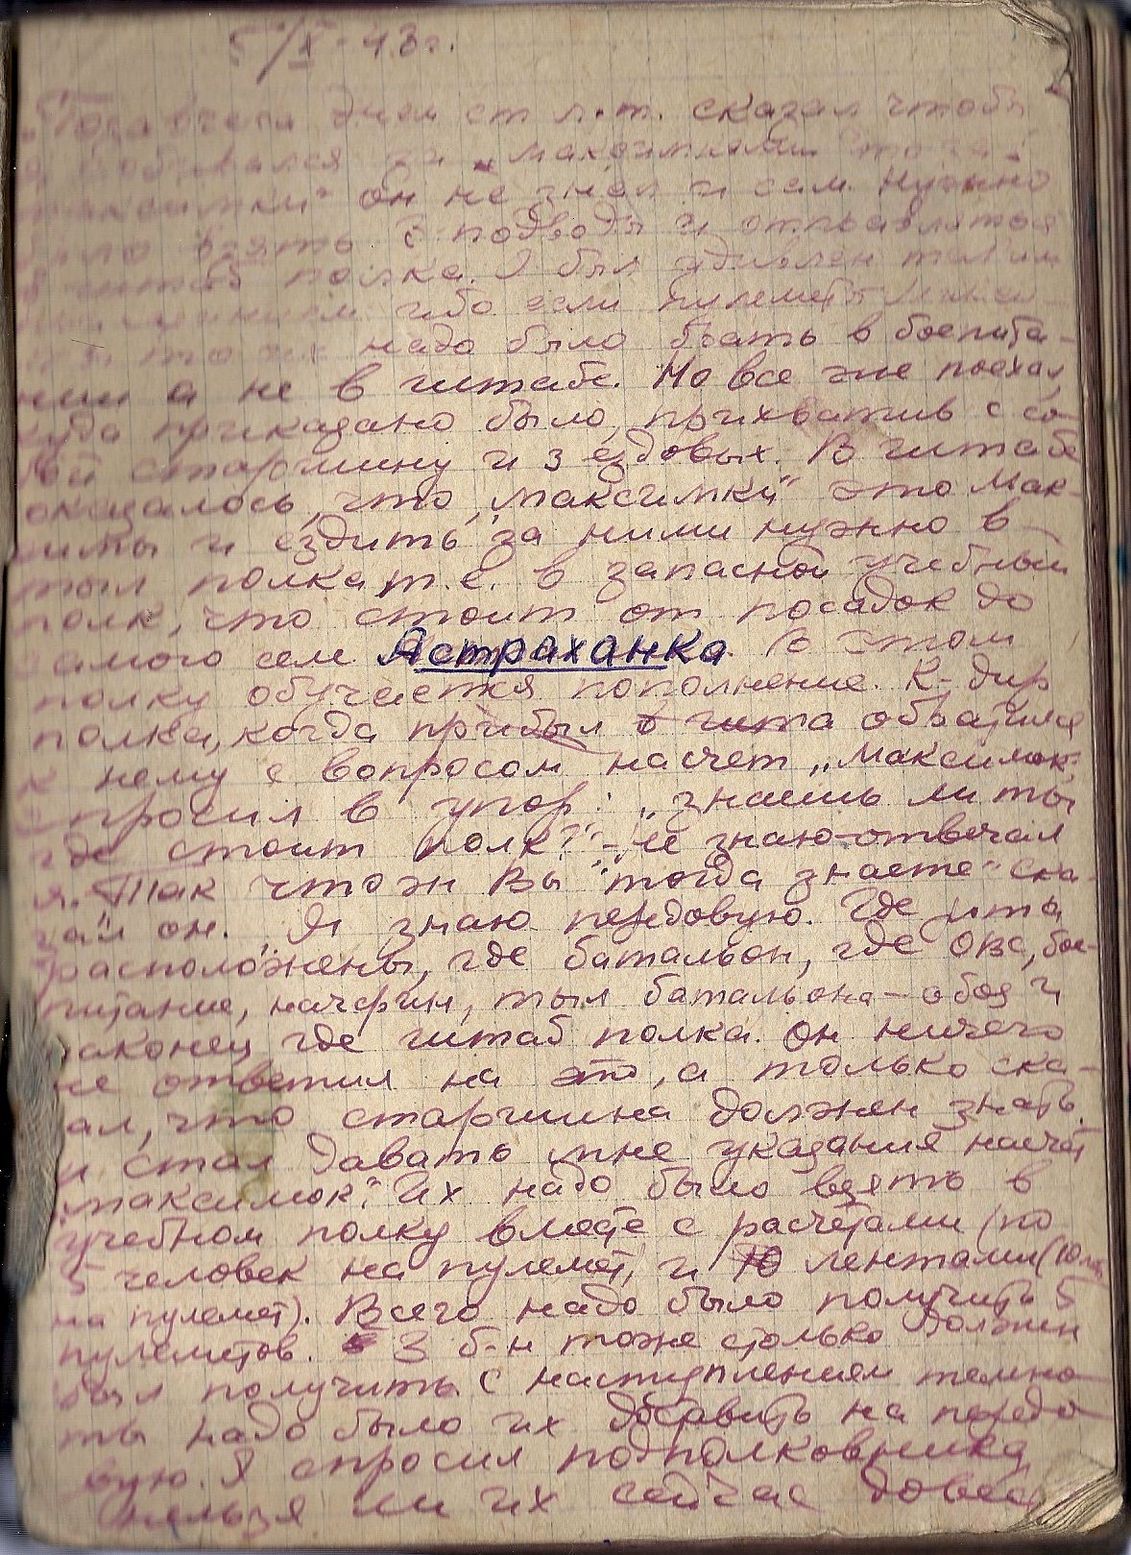 5/X-43г.
Позавчера днем ст. л-т. сказал чтобы
я собирался за „максимками". Что за
максимки" он не знал и сам. Нужно
было взять 3 подводы и отправляться
в штаб полка. Я был удивлен таким
ибо если пулеметы
то их надо было брать в боепита-
нии а не в штабе. Но все же поехал,
куда приказано было, прихватив с со-
бой старшину и 3 ездовых. В штабе
оказалось, что „максимки" это Мак-
симы и ездить за ними нужно в
тыл полка т.е. в запасной учебный
полк, что стоит от посадок до
самого села Астраханка. В этом
полку обучается пополнение. К-дир
полка, когда прибыл в шта обратился
к нему с вопросом насчет „Максимок",
спросил в упор: „знаешь ли ты
где стоит полк?" – „не знаю – отвечал
я. „Так что ж Вы тогда знаете" ска-
зал он. „Я знаю передовую. Где м-та
расположены, где батальон, где ОВС, бое-
питание, начфин, тыл батальона – обоз и
наконец где штаб полка. Он ничего
не ответил на это, а только ска-
зал, что старшина должен знать
и стал давать мне указания насчет
„максимок". Их надо было взять в
учебном полку вместе с расчетами (по
5 человек на пулемет, и 10 лентами (10 л.
на пулемет). Всего надо было получить 5
пулеметов. 3 б-н тоже столько должен
был получить. С наступлением темно-
ты надо было их доставить на передо-
вую. Я спросил подполковника
нельзя ли их сейчас довез